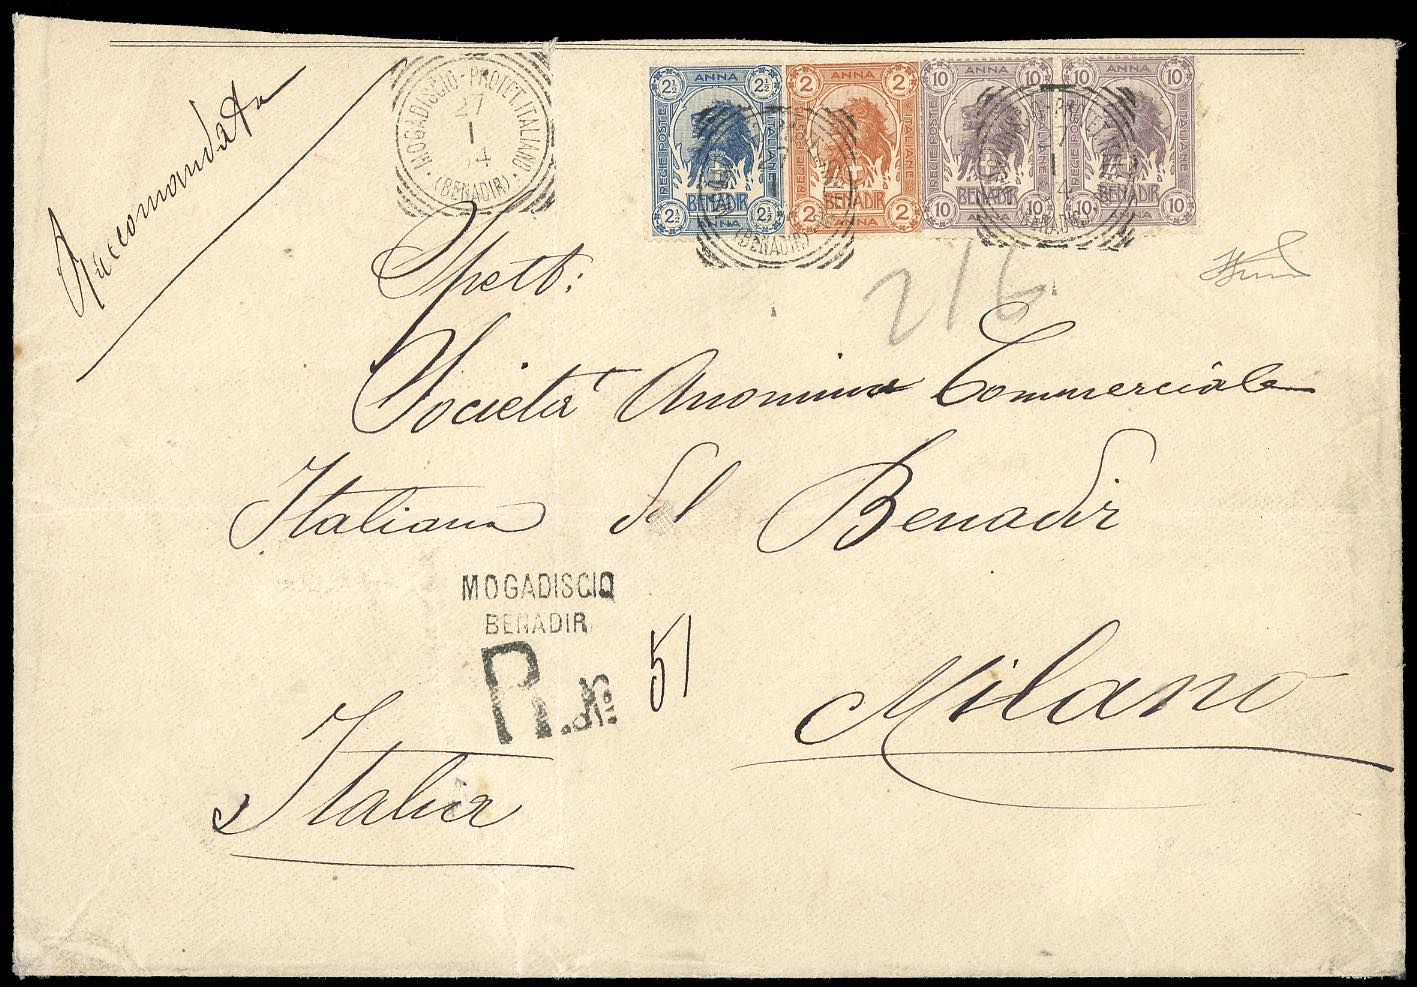 Raccomandata
MOGADISCIO - PROTET. ITALIANO
27
1
04
(BENADIR)
2½ ANNA 2½
REGIE POSTE ITALIANE
BENADIR
2½ ANNA 2½
2 ANNA 2
REGIE POSTE ITALIANE
BENADIR
2 ANNA 2
10 ANNA 10
REGIE POSTE ITALIANE
BENADIR
10 ANNA 10
10 ANNA 10
REGIE POSTE ITALIANE
BENADIR
10 ANNA 10
(BENADIR)
(BENADIR)
216
Spett:
Società Anonima Commerciale
Italiana del Benadir
MOGADISCIO
BENADIR
R. No. 51
Milano
Italia